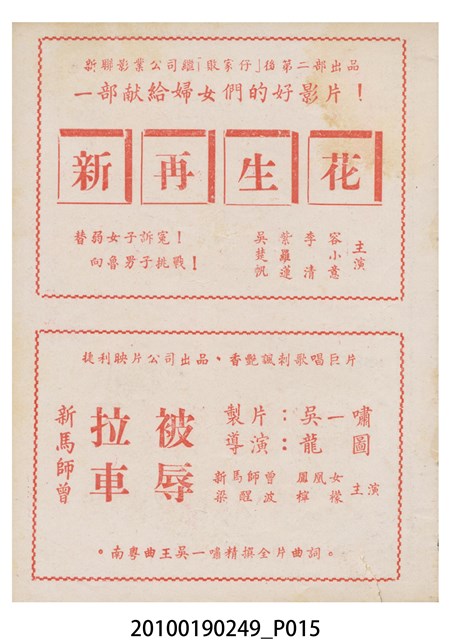 新聯影業公司繼「敗家仔」後第二部出品
一部献給婦女們的好影片！
新再生花
替弱女子訴冤！
向魯男子挑戰！
吳楚帆
紫羅蓮
李清
容小意
主演
捷利映片公司出品、香艷諷刺歌唱巨片
新馬師曾
拉車被辱
製片：吳一嘯
導演：龍圖
新馬師曾 鳳凰女
梁醒波 檸檬
主演
。南粵曲王吳一嘯精撰全片曲詞。
20100190249_P015